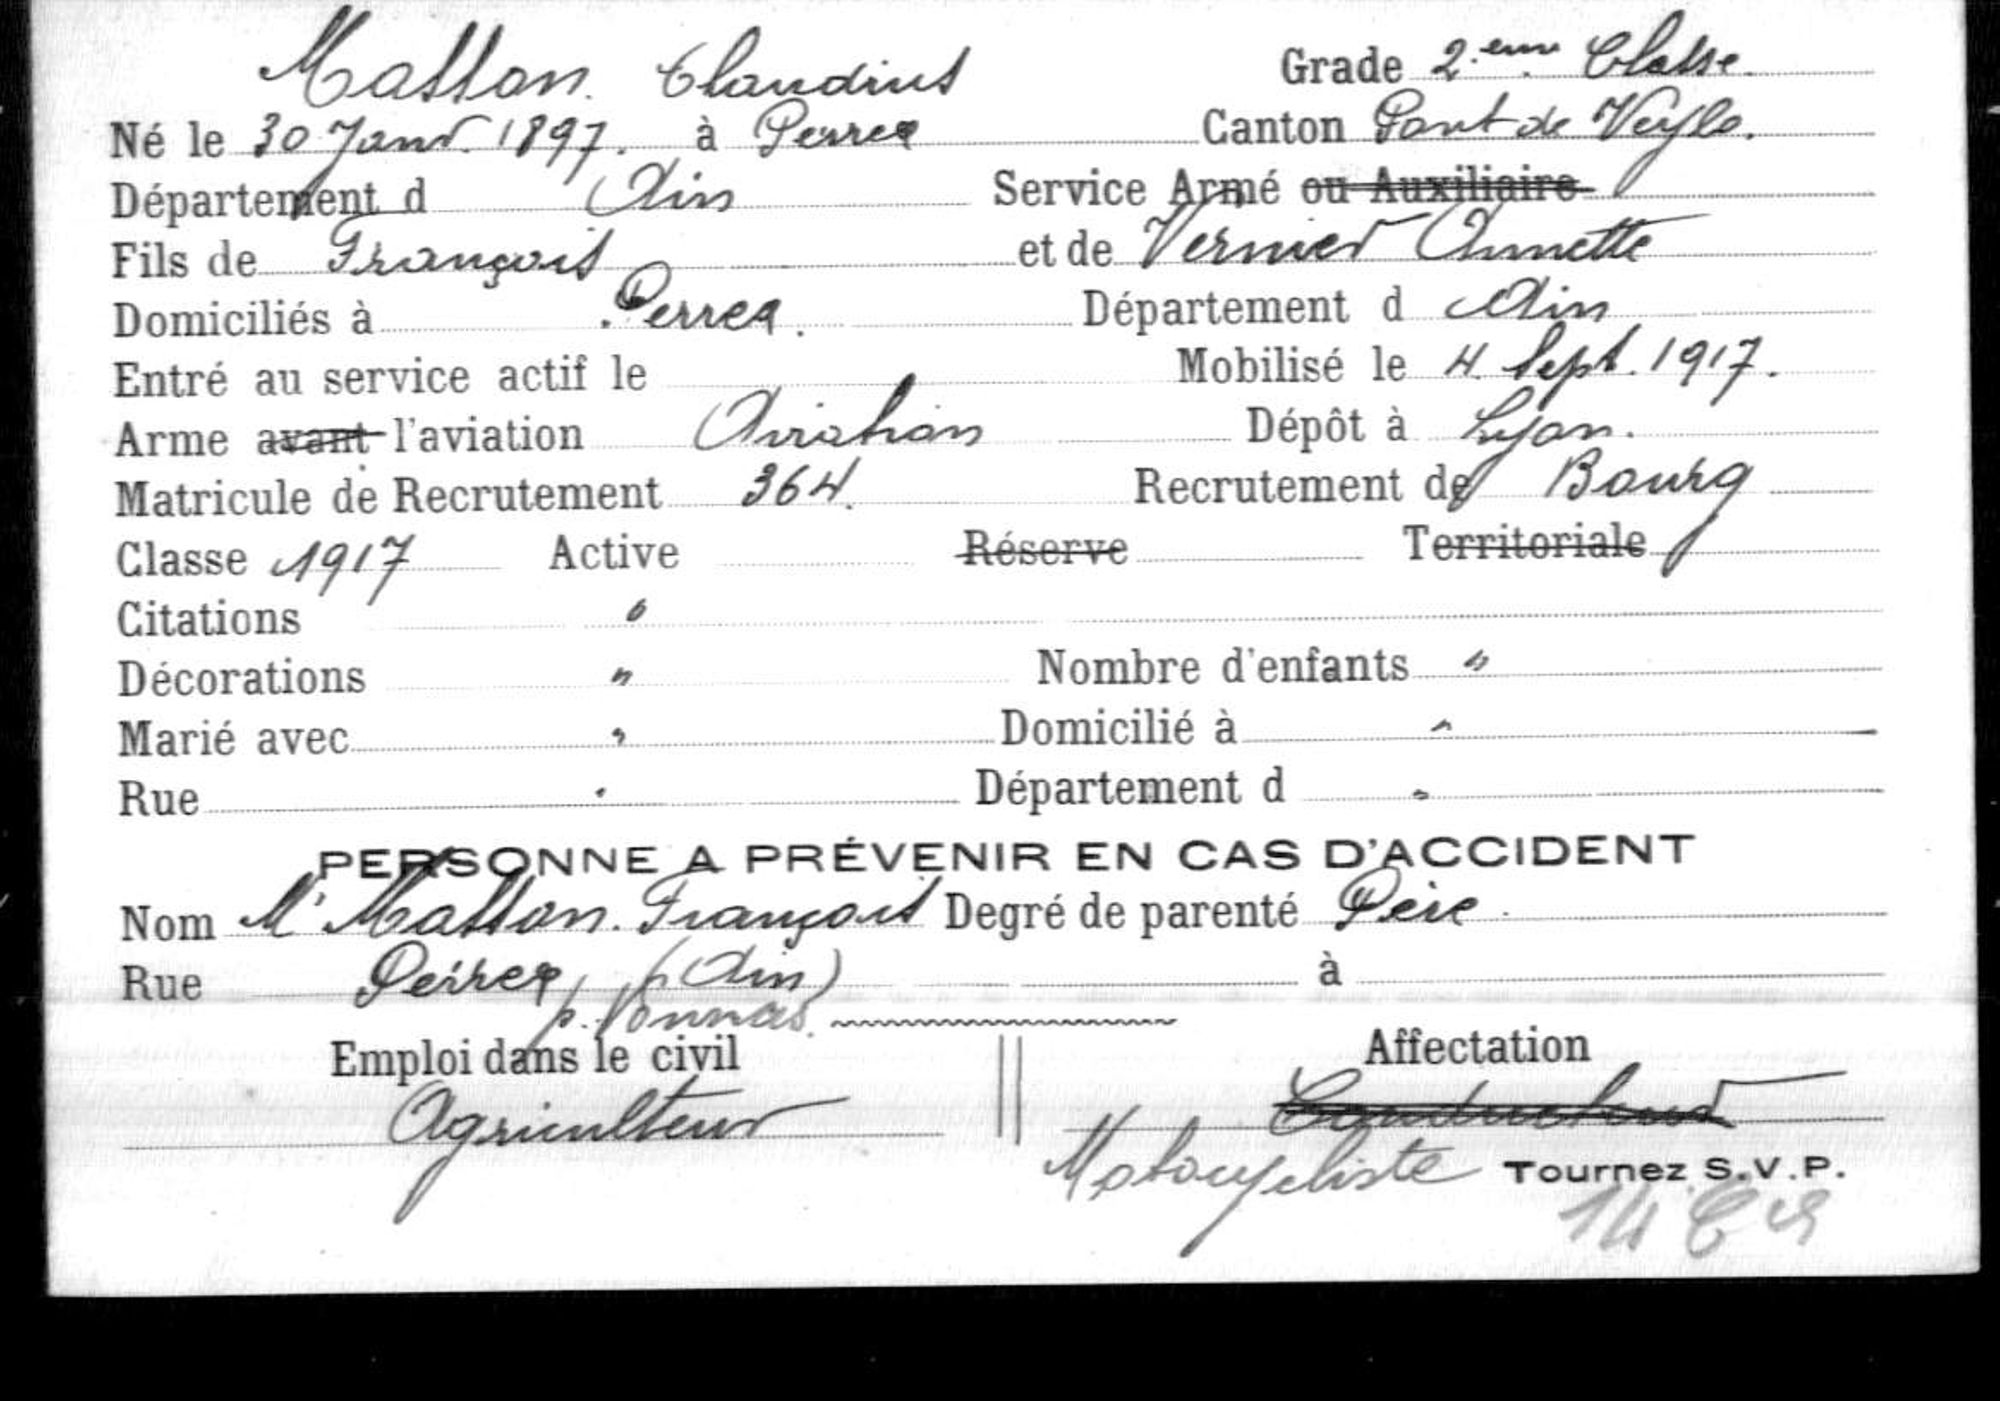 Masson. Claudius Grade 2.eme Classe.
Né le 30 Janv. 1897. à Perrex Canton Pont de Veyle.
Département d Ain Service Armé ou Auxiliaire
Fils de François et de Vernier Annette
Domiciliés à Perrex. Département d Ain
Entré au service actif le Mobilisé le 4 Sept. 1917.
Arme avant l'aviation Aviation Dépôt à Lyon.
Matricule de Recrutement 364. Recrutement de Bourg
Classe 1917 Active Réserve Territoriale
Citations "
Décorations " Nombre d'enfants "
Marié avec " Domicilié à "
Rue " Département d "
PERSONNE A PRÉVENIR EN CAS D'ACCIDENT
Nom Mr Masson. François Degré de parenté Père
Rue Perrex, (Ain) à
p. Vonnas.
Emploi dans le civil Affectation
Agriculteur Conducteur
Motocycliste Tournez S.V.P.
14